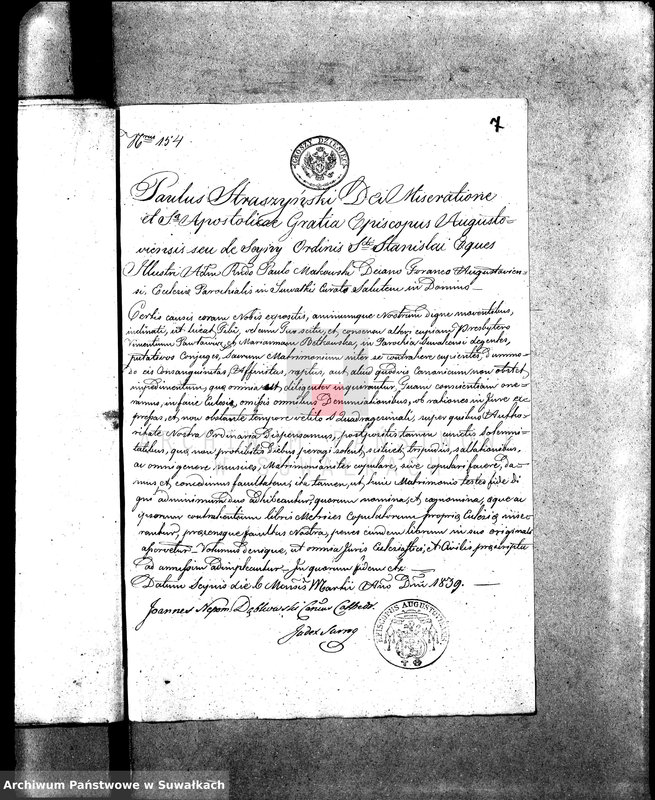 7
Nrus 154
GROSZY DZIESIĘĆ
Paulus Straszyński Dei Miseratione
et Sæ Apostolicæ Gratia Episcopus Augusto-
viensis seu de Seyny Ordinis Sti Stanislai Eques
Illustri Adm Rndo Paulo Makowski Decano Foraneo Augustovien-
si, Ecclesiæ Parochialis in Suwałki Curato Salutem in Domino
Certis causis coram Nobis expositis, animumque Nostrum digne moventibus,
inclinati, ut liceat Tibi, vel cum Tuo scitu, et consensu alteri cuipiam Presbytero
Vincentium et Mariannam in Parochia Suvalcensi degentes,
putativos Conjuges, Matrimonium inter se contrahere cupientes, dummo-
do eis Consanguinitas, Affinitas, raptus, aut aliud quodvis Canonicum non obstet
impedimentum, quæ omnia ut, diligenter inquirantur, Tuam conscientiam one-
ramus, in facie Ecclesiæ, omissis omnibus Denunciationibus, ob rationes in Jure ex-
pressas, et non obstante tempore vetito Quadragesimali, super quibus Autho-
ritate Nostra Ordinaria dispensamus, postpositis tamen cunctis solemni-
tatibus, quæ non prohibitis diebus peragi solent, scilicet, tripudiis, saltationibus,
ac omni genere musices, Matrimonialiter copulare, sive copulari facere, da-
mus et concedimus facultatem; ita tamen, ut, huic Matrimonio testes fide di-
gni adminimum duo adhibeantur, quorum nomina, et cognomina, æque ac
ipsorum contrahentium libris Metrices Copulatorum propriæ Ecclesiæ inse-
rantur, præsensque facultas Nostra, penes eundem librum in suo originali
asservetur. Volumus denique, ut omnia Juris Ecclesiastici, et Civilis præscripta
ad amussim adimpleantur. In quorum fidem etc.
Datum Seynis die 6 Mensis Martii Anno Dni 1839.
Joannes Nepom
Judex Surrog
EPISCOPUS AUGUSTOVIENSIS
Archiwum Państwowe w Suwałkach